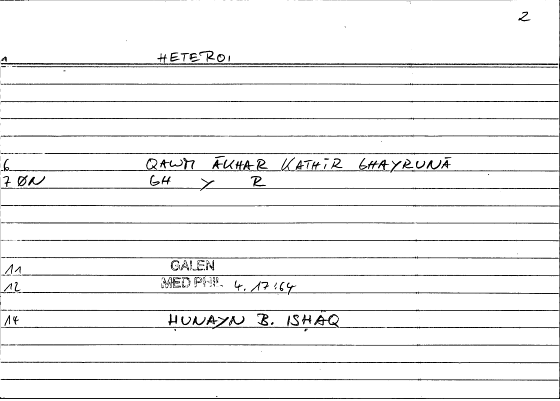 2
1 HETEROI
6 QAWM ĀKHAR KATHĪR GHAYRUNĀ
7 ØN GH Y R
11 GALEN
12 MED PHIL. 4.17:64
14 ḤUNAYN B. ISḤĀQ